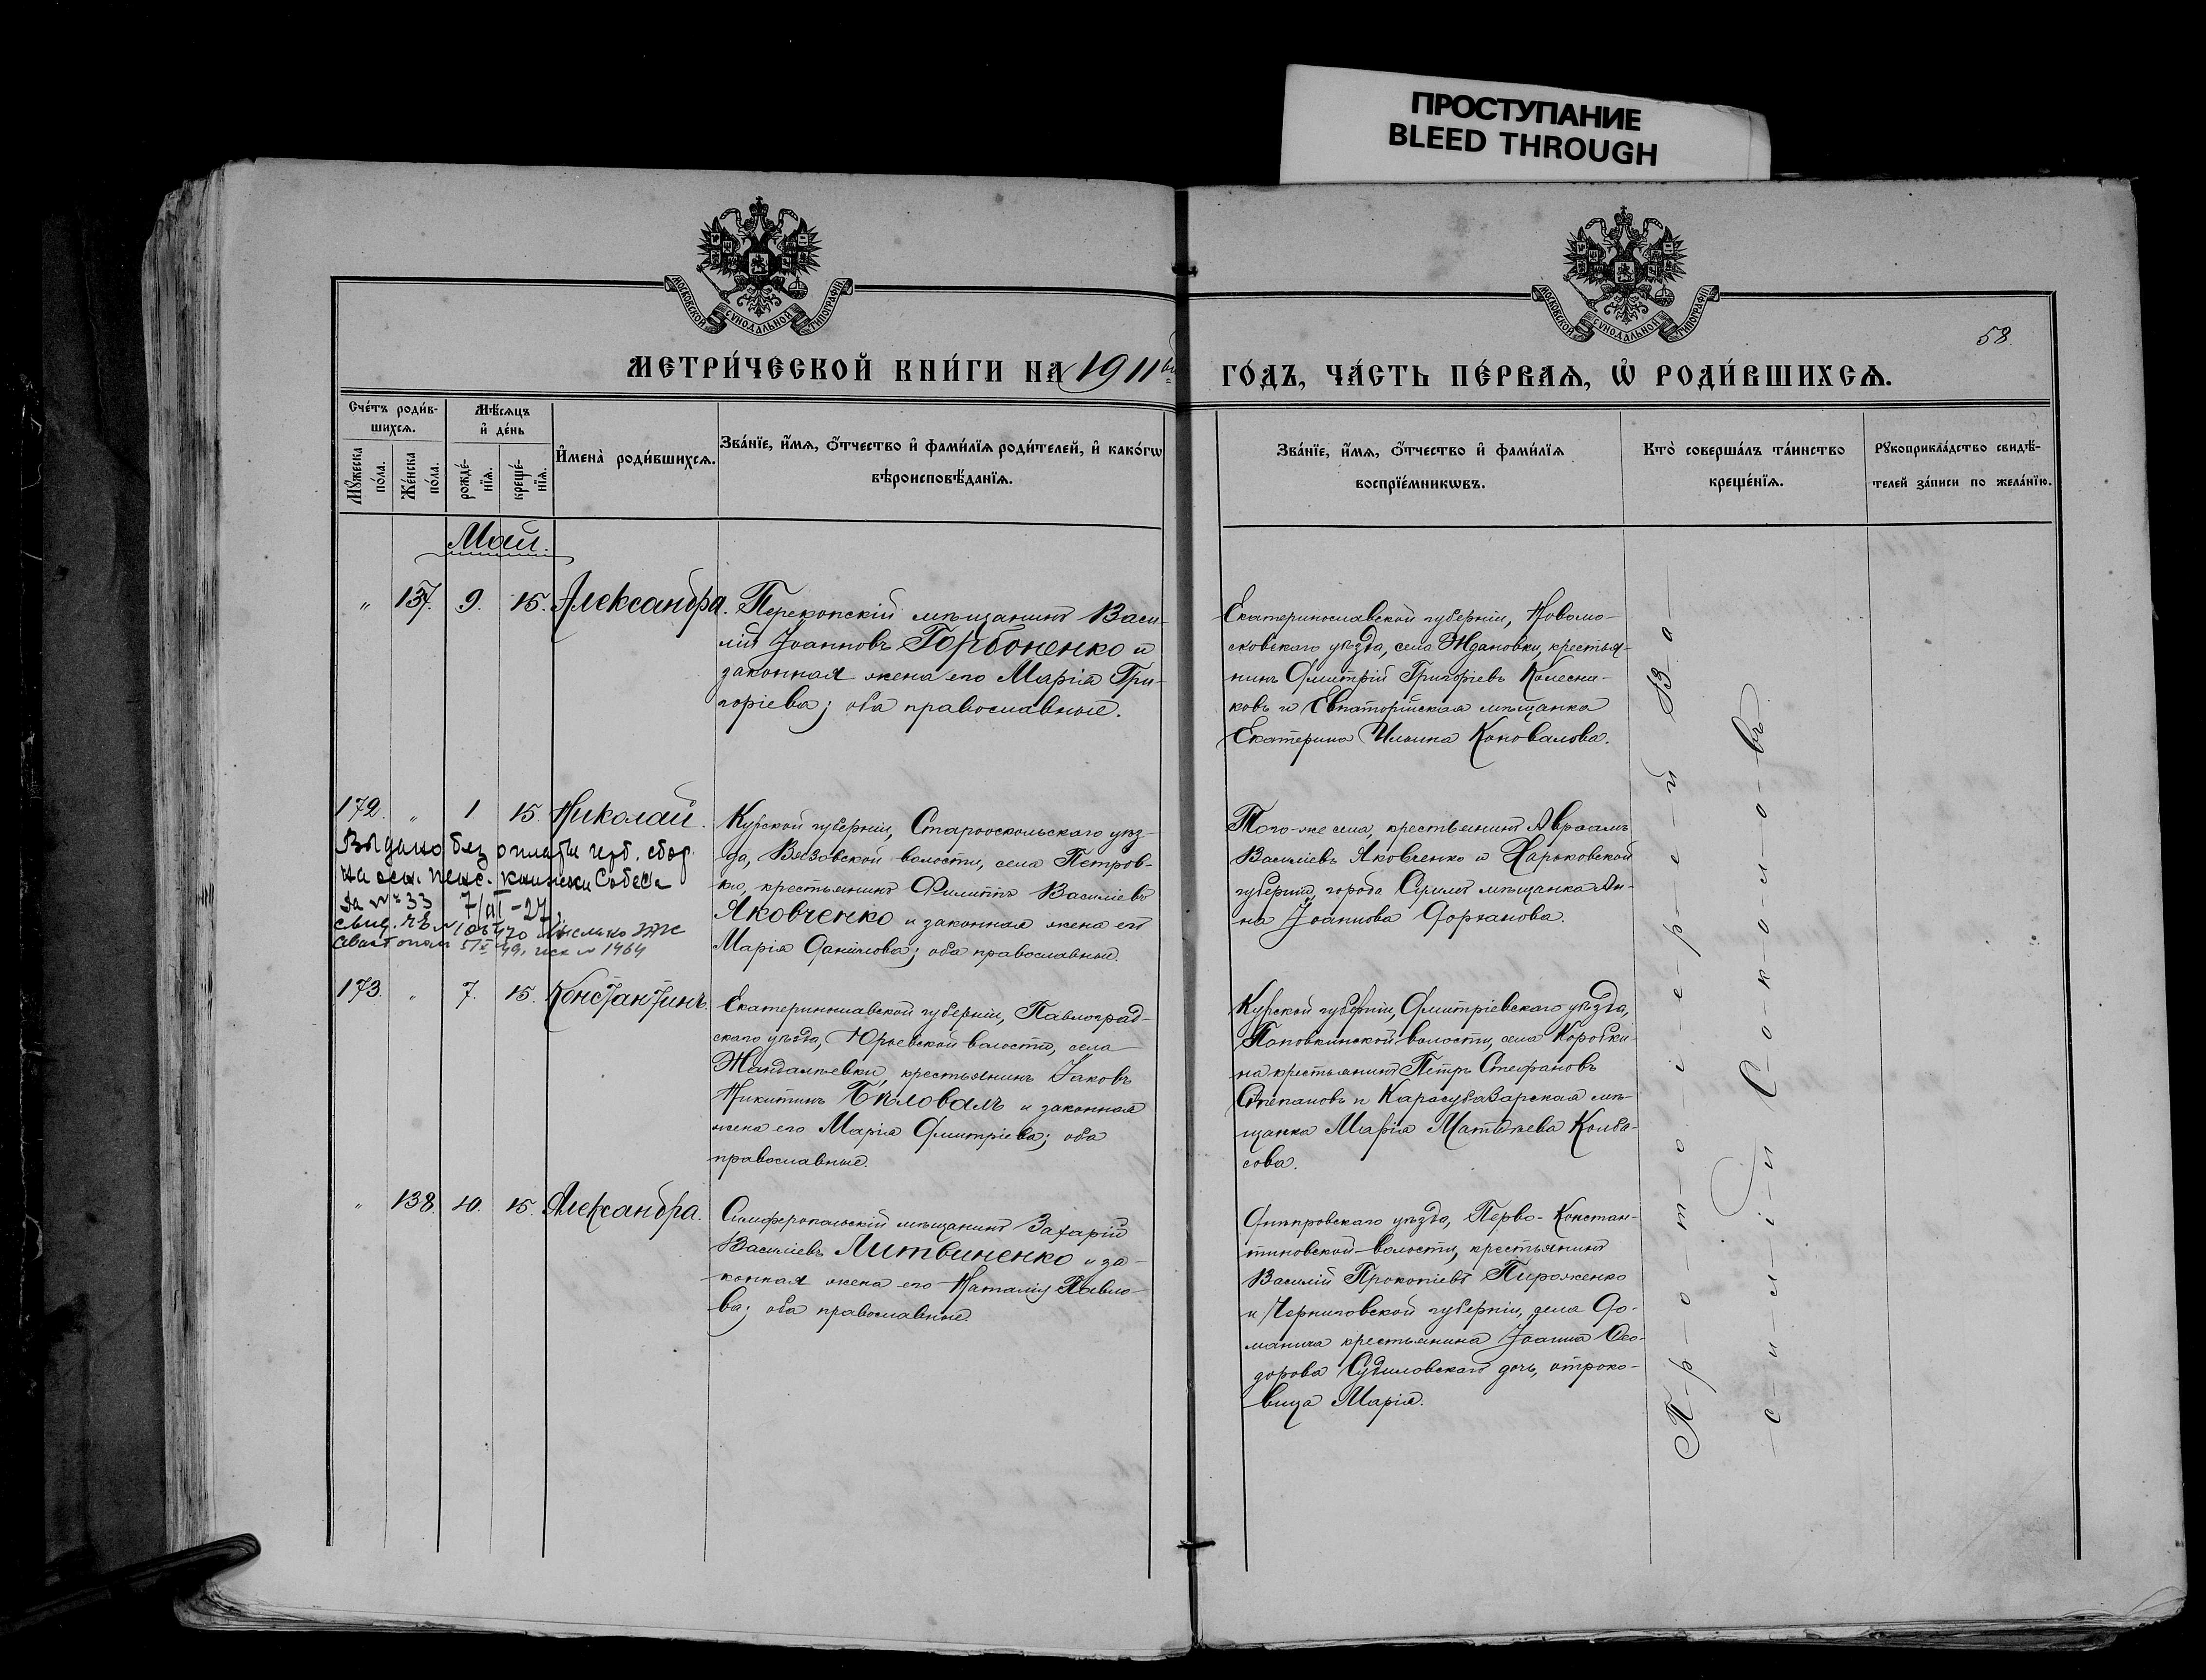 ПРОСТУПАНИЕ
BLEED THROUGH
МОСКОВСКОЙ СУНОДАЛЬНОЙ ТИПОГРАФІИ
МОСКОВСКОЙ СУНОДАЛЬНОЙ ТИПОГРАФІИ
58.
МЕТРИ́ЧЕСКОЙ КНИ́ГИ НА 1911
ГО́ДЪ, ЧА́СТЬ ПЕ́РВАѦ, Ѡ҆ РОДИ́ВШИХСѦ.
Сче́тъ роди́в-
шихсѧ.
Мꙋ́жеска по́ла.
Же́нска по́ла.
Мѣ́сѧцъ
и҆ де́нь
рожде́-
нїѧ.
креще́-
нїѧ.
И҆мена̀ роди́вшихсѧ.
Зва́нїе, и҆́мѧ, ѻ҆́тчество и҆ фами́лїѧ роди́телей, и҆ како́гѡ
вѣроисповѣ́данїѧ.
Зва́нїе, и҆́мѧ, ѻ҆́тчество и҆ фами́лїѧ
воспрїе́мникѡвъ.
Кто̀ соверша́лъ та́инство
креще́нїѧ.
Рꙋкоприкла́дство свидѣ́-
телей за́писи по жела́нїю.
Май.
" 137. 9. 15. Александра.
Перекопскій мѣщанинъ Васи-
лій Іоанновъ Горбоненко и
законная жена его Марія Гри-
горіева; оба православные.
Екатеринославской губерніи, Новомо-
сковскаго уѣзда, села Ждановки, крестья-
нинъ Дмитрій Григоріевъ Колесни-
ковъ и Евпаторійская мѣщанка
Екатерина Ильина Коновалова.
172. " 1 15. Николай.
Выдано без оплаты герб. сбор.
на осн. пенс. книжки Собеса
за № 33 7/VI-27
Курской губерніи, Старооскольскаго уѣз-
да, волости, села Петров-
ки, крестьянинъ Филиппъ Василіевъ
Яковченко и законная жена его
Марія Даніилова; оба православные.
Того-же села, крестьянинъ Авраамъ
Василіевъ Яковченко и Харьковской
губерніи, города Сумъ мѣщанка Ан-
на Іоаннова
173. " 7. 15. Константинъ.
Екатеринославской губерніи, Павлоград-
скаго уѣзда, Юрьевской волости, села
Жандалѣевки, крестьянинъ Іаковъ
Никитинъ Бѣловалъ и законная
жена его Марія Дмитріева; оба
православные.
Курской губерніи, Дмитріевскаго уѣзда,
Поповкинской волости, села Коробки-
на крестьянинъ Петръ Стефановъ
Степановъ и Карасубазарская мѣ-
щанка Марія Матѳѣева Колба-
сова.
" 138. 10. 15. Александра.
Симферопольскій мѣщанинъ Захарій
Василіевъ Литвиненко и за-
конная жена его Наталія Павло-
ва; оба православные.
Днѣпровскаго уѣзда, Перво-Констан-
тиновской волости, крестьянинъ
Василій Прокопіевъ Пироженко
и Черниговской губерніи, села До-
манича крестьянина Іоанна Ѳео-
дорова Судиловскаго дочь, отроко-
вица Марія.
П-р-о-т-о-і-е-р-е-й В-а-
с-и-л-і-й С-о-к-о-л-о-въ